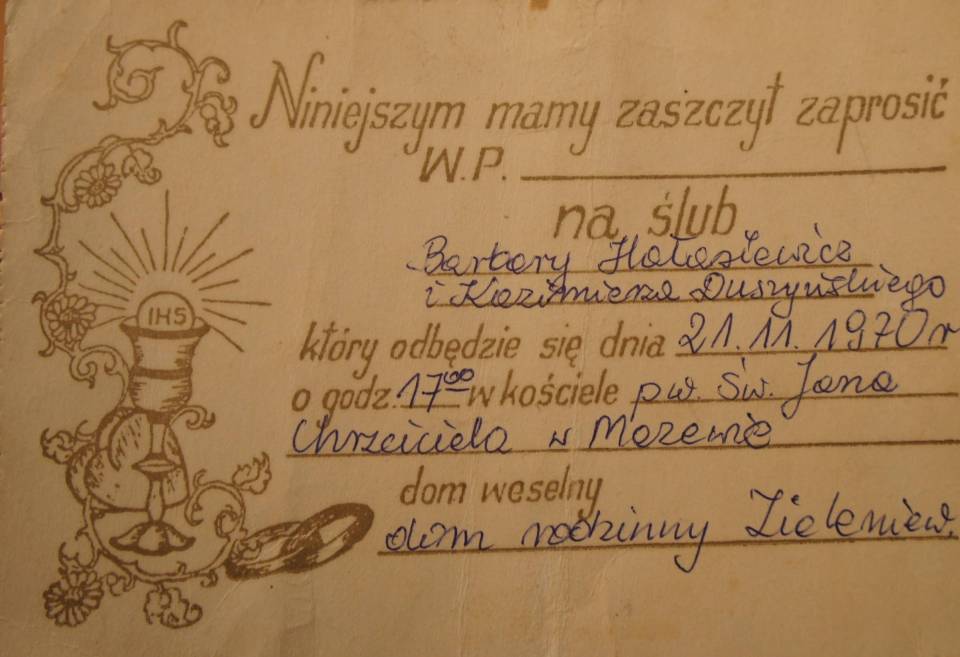 Niniejszym mamy zaszczyt zaprosić
W.P.
na ślub
Barbary Hałasiewicz
i Kazimierza Duszyńskiego
który odbędzie się dnia 21.11.1970 r
o godz. 17⁰⁰ w kościele pw. Św. Jana
Chrzciciela w Mazewie
dom weselny
dom rodzinny Zieleniew.
IHS